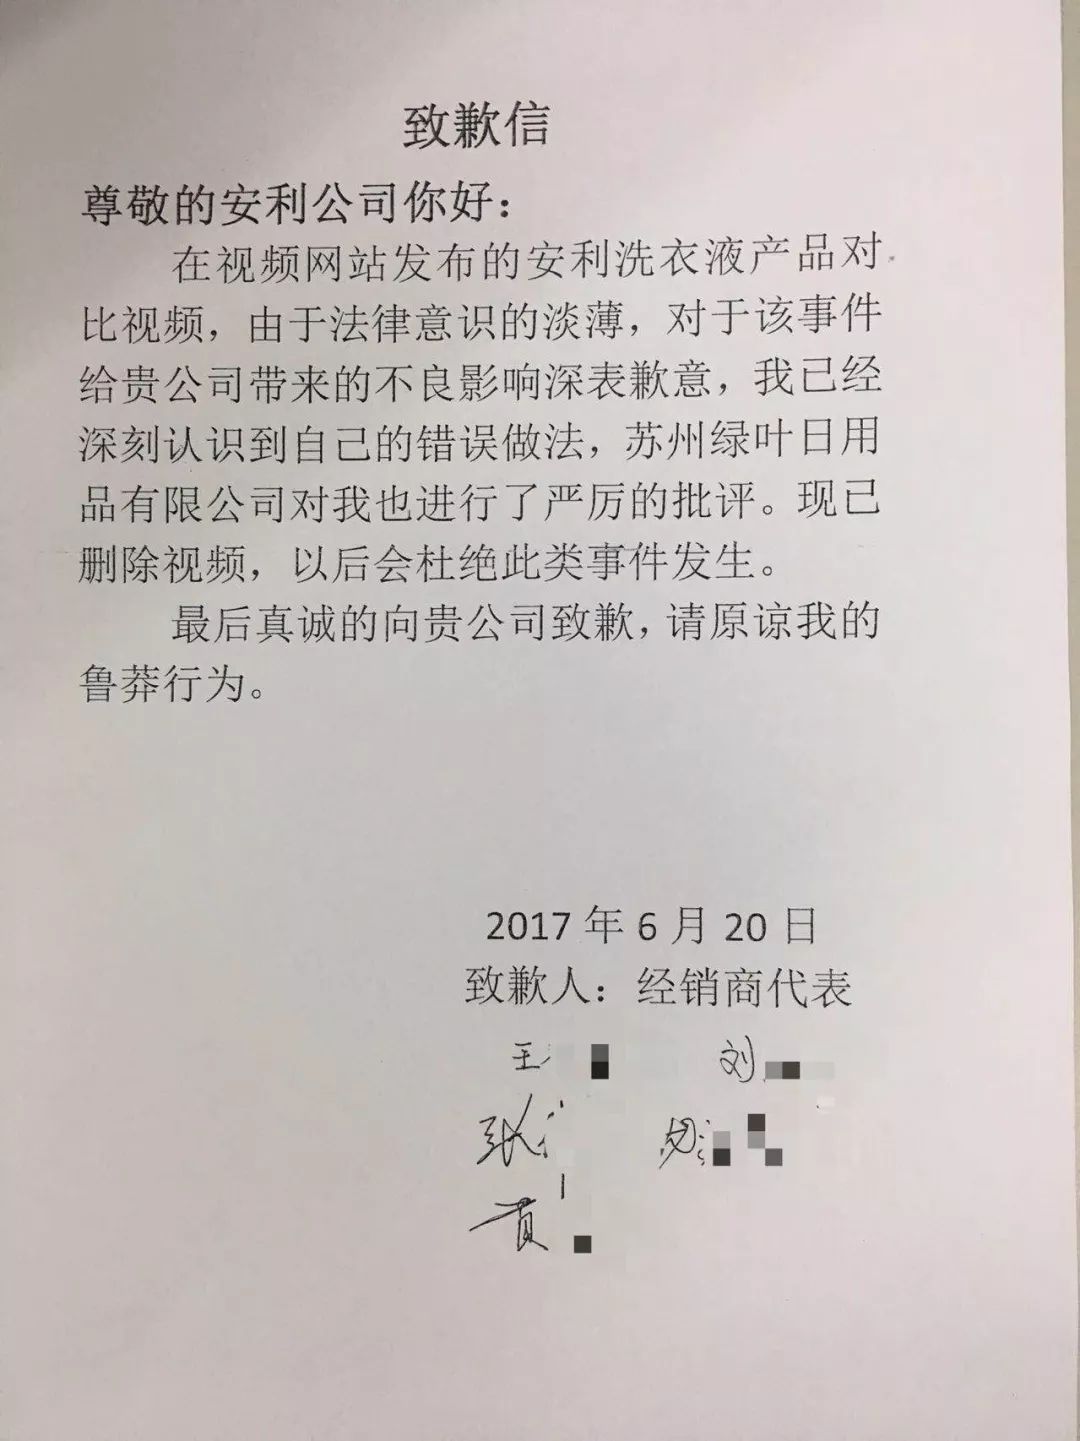 致歉信
尊敬的安利公司你好：
在视频网站发布的安利洗衣液产品对
比视频，由于法律意识的淡薄，对于该事件
给贵公司带来的不良影响深表歉意，我已经
深刻认识到自己的错误做法，苏州绿叶日用
品有限公司对我也进行了严厉的批评。现已
删除视频，以后会杜绝此类事件发生。
最后真诚的向贵公司致歉，请原谅我的
鲁莽行为。
2017 年 6 月 20 日
致歉人：经销商代表
王 刘
张
黄